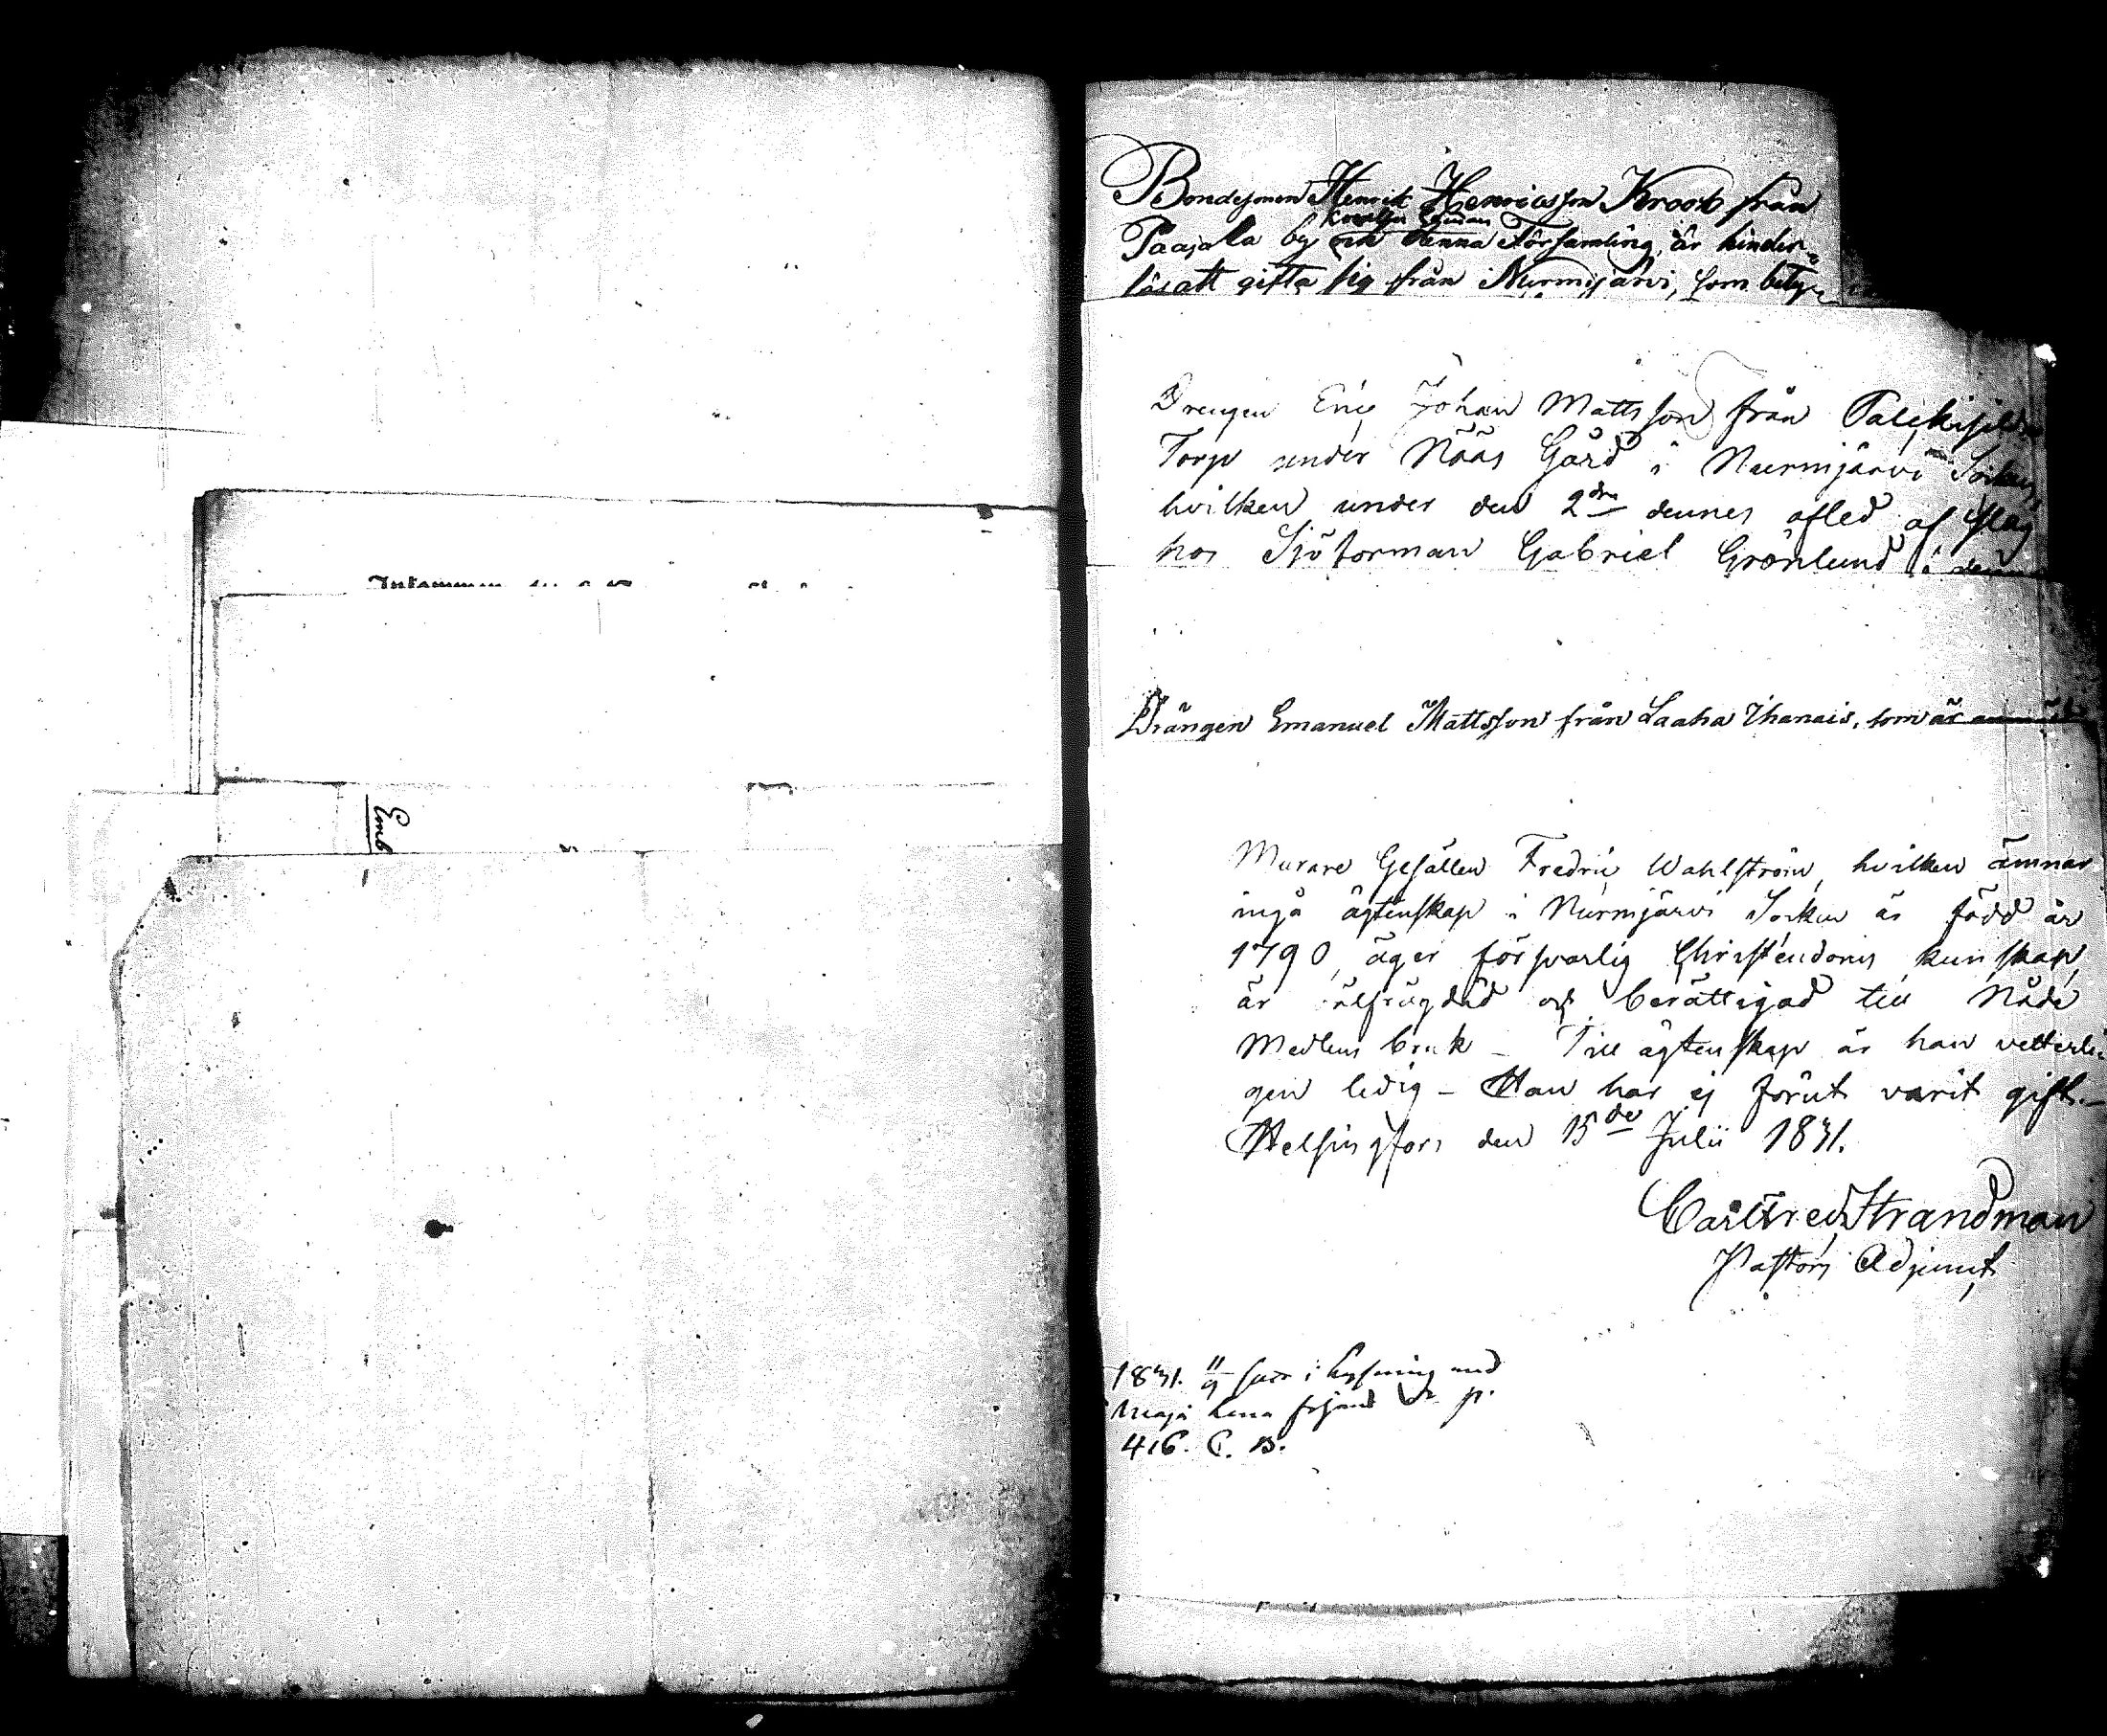 Emb
Bondesonen Henrik Henricsson Krook från
Paajala by och denna Församling, är hinder-
lös att gifta sig från Nurmijärvi, som bety-
Drengen Eric Johan Mattsson från
Torp under Nääs Gård i Nurmijärvi Socken,
hvilken under den 2dra dennes afled af slag
hos Sjöforman Gabriel Grönlund i denna
Drängen Emanuel Mattsson från Laaha Ihanais, som är
Murare Gesällen Fredric Wahlström, hvilken ämnar
ingå ägtenskap i Nurmijärvi Socken är född år
1790, äger försvarlig Christendoms kunskap,
är välfrägdad och berättigad till Nåde
Medlens bruk – Till ägtenskap är han vetterli-
gen ledig – Han har ej förut varit gift. –
Helsingfors den 15de Julii 1831.
Carl Fred Strandman
Pastors Adjunct
1831. 11/9 i lysning med
Maja Lena p.
416. C. B.